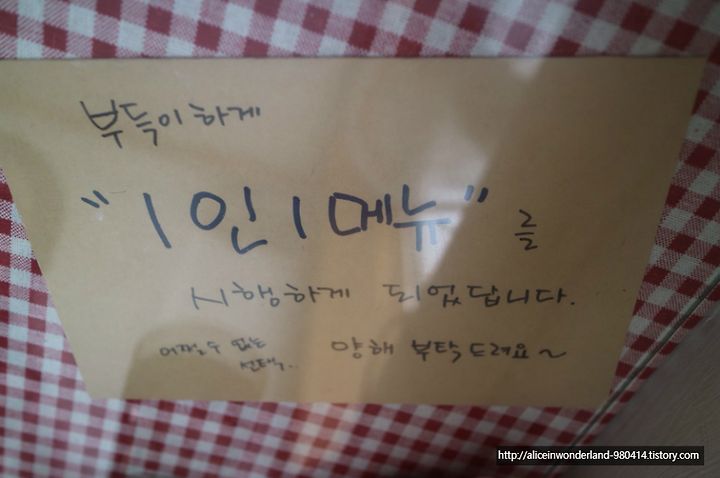 부득이하게
"1인1메뉴"를
시행하게 되었답니다.
어쩔수 없는
선택..
양해 부탁드려요~
http://aliceinwonderland-980414.tistory.com